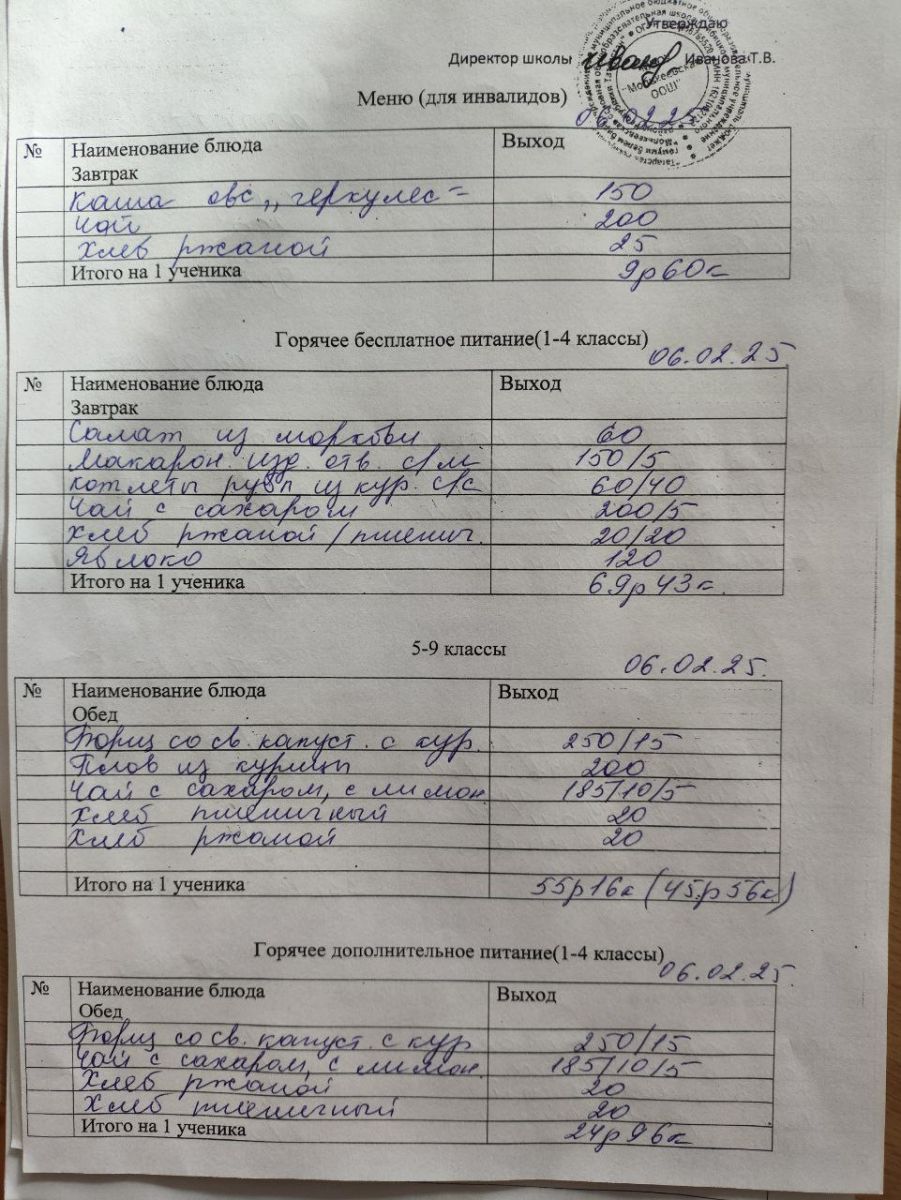 Утверждаю
Директор школы Иванова Т.В.
Меню (для инвалидов)
06.02.25
№ Наименование блюда Выход
Завтрак
Каша овс ,,геркулес" 150
Чай 200
Хлеб ржаной 25
Итого на 1 ученика 9р60к
Горячее бесплатное питание(1-4 классы)
06.02.25.
№ Наименование блюда Выход
Завтрак
Салат из моркови 60
Макарон. изд. отв. с/м 150/5
Котлеты рубл из кур. с/с 60/40
Чай с сахаром 200/5
Хлеб ржаной/пшенич. 20/20
Яблоко 120
Итого на 1 ученика 69р43к.
5-9 классы
06.02.25.
№ Наименование блюда Выход
Обед
Борщ со св. капуст. с кур. 250/15
Плов из курицы 200
Чай с сахаром, с лимон. 185/10/5
Хлеб пшеничный 20
Хлеб ржаной 20
Итого на 1 ученика 55р16к (45р56к)
Горячее дополнительное питание(1-4 классы)
06.02.25.
№ Наименование блюда Выход
Обед
Борщ со св. капуст. с кур 250/15
Чай с сахаром, с лимон. 185/10/5
Хлеб ржаной 20
Хлеб пшеничный 20
Итого на 1 ученика 24р96к